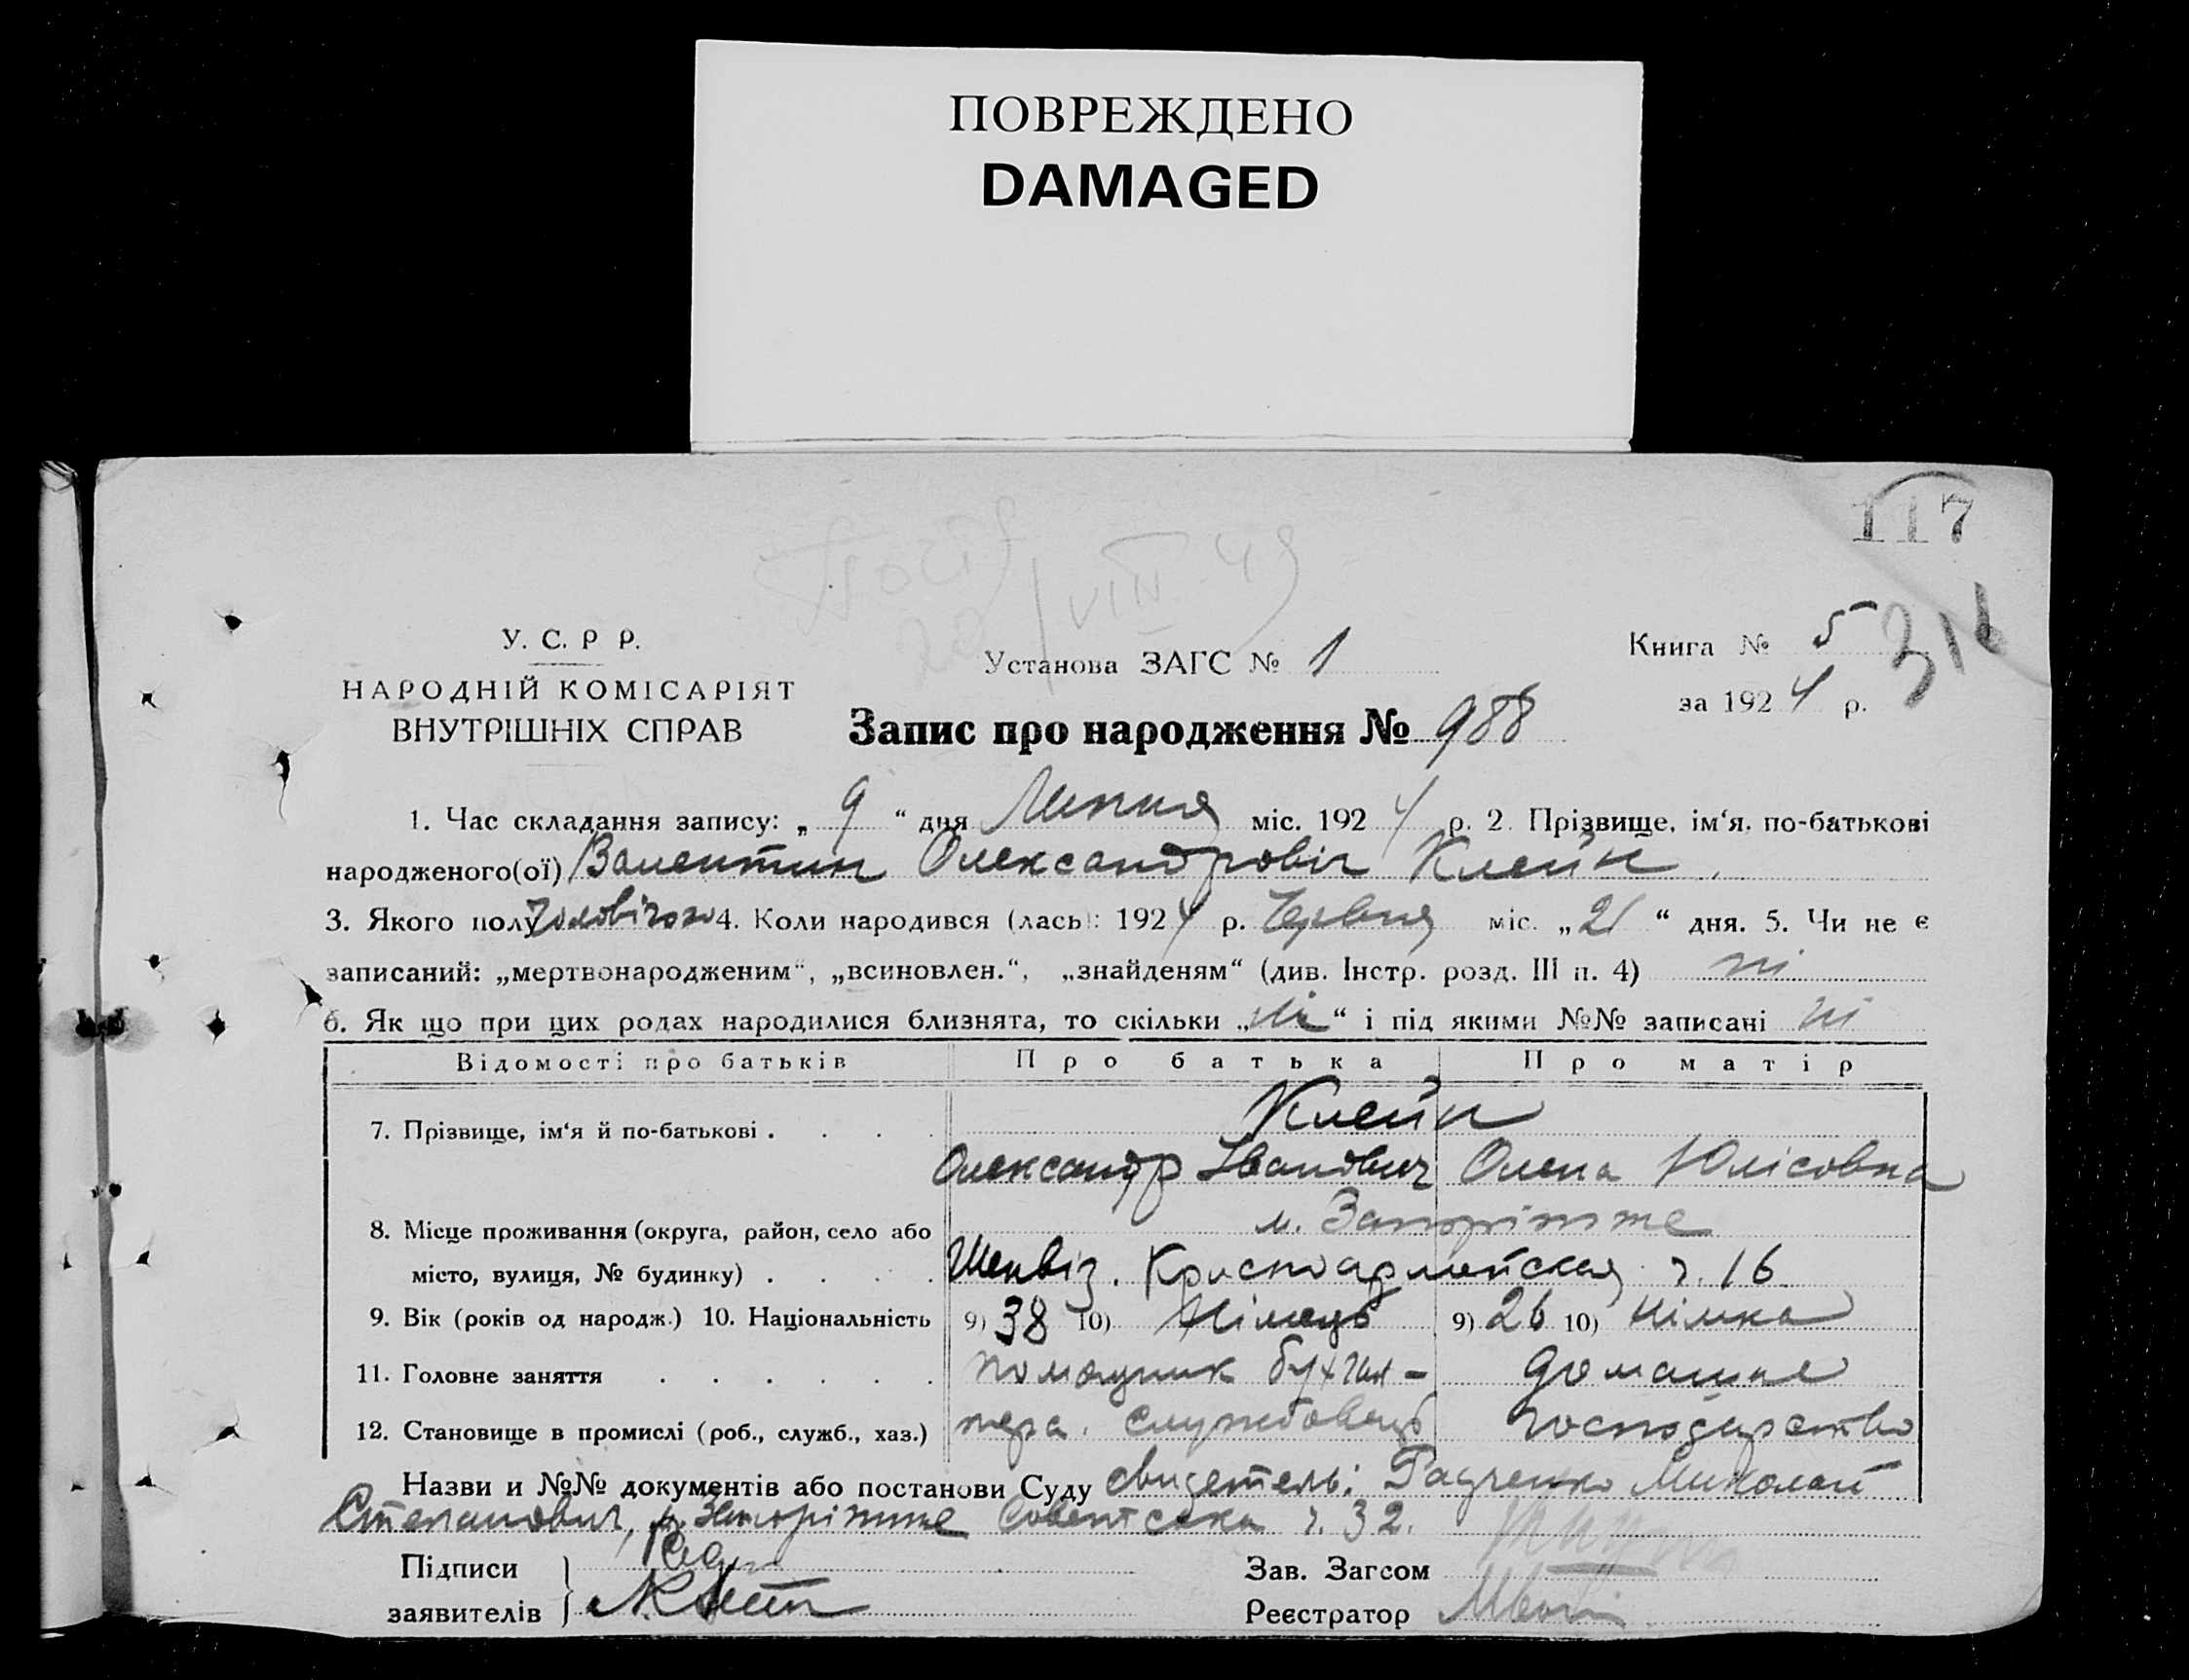 ПОВРЕЖДЕНО
DAMAGED
117
316
У. С. Р Р.
НАРОДНІЙ КОМІСАРІЯТ
ВНУТРІШНІХ СПРАВ
Установа ЗАГС № 1
Книга № 5
за 1924 р.
Запис про народження № 988
1. Час складання запису: „ 9 “ дня Липня міс. 1924 р. 2. Прізвище, ім‘я, по-батькові
народженого(ої) Валентин Олександровіч Клейн
3. Якого полу Чоловічого 4. Коли народився (лась): 1924 р. Червня міс. „ 21 “ дня. 5. Чи не є
записаний: „мертвонародженим“, „всиновлен.“, „знайденям“ (див. Інстр. розд. III п. 4) ні
6. Як що при цих родах народилися близнята, то скільки „ ні “ і під якими №№ записані ні
Відомості про батьків Про батька Про матір
7. Прізвище, ім‘я й по-батькові . . . . Клейн
Олександр Іванович Олена Юлісовна
8. Місце проживання (округа, район, село або м. Запоріжже
місто, вулиця, № будинку) . . . . Шенвіз. Красноармейская ч. 16
9. Вік (років од народж.) 10. Національність 9) 38 10) Німець 9) 26 10) німка
11. Головне заняття . . . . . . помощник бухгал- домашнє
12. Становище в промислі (роб., служб., хаз.) тера. службовець господарство
Назви и №№ документів або постанови Суду свидетель: Радченко Миколай
Степанович, м. Запоріжже Совентська ч. 32.
Підписи
заявителів
Зав. Загсом
Реєстратор